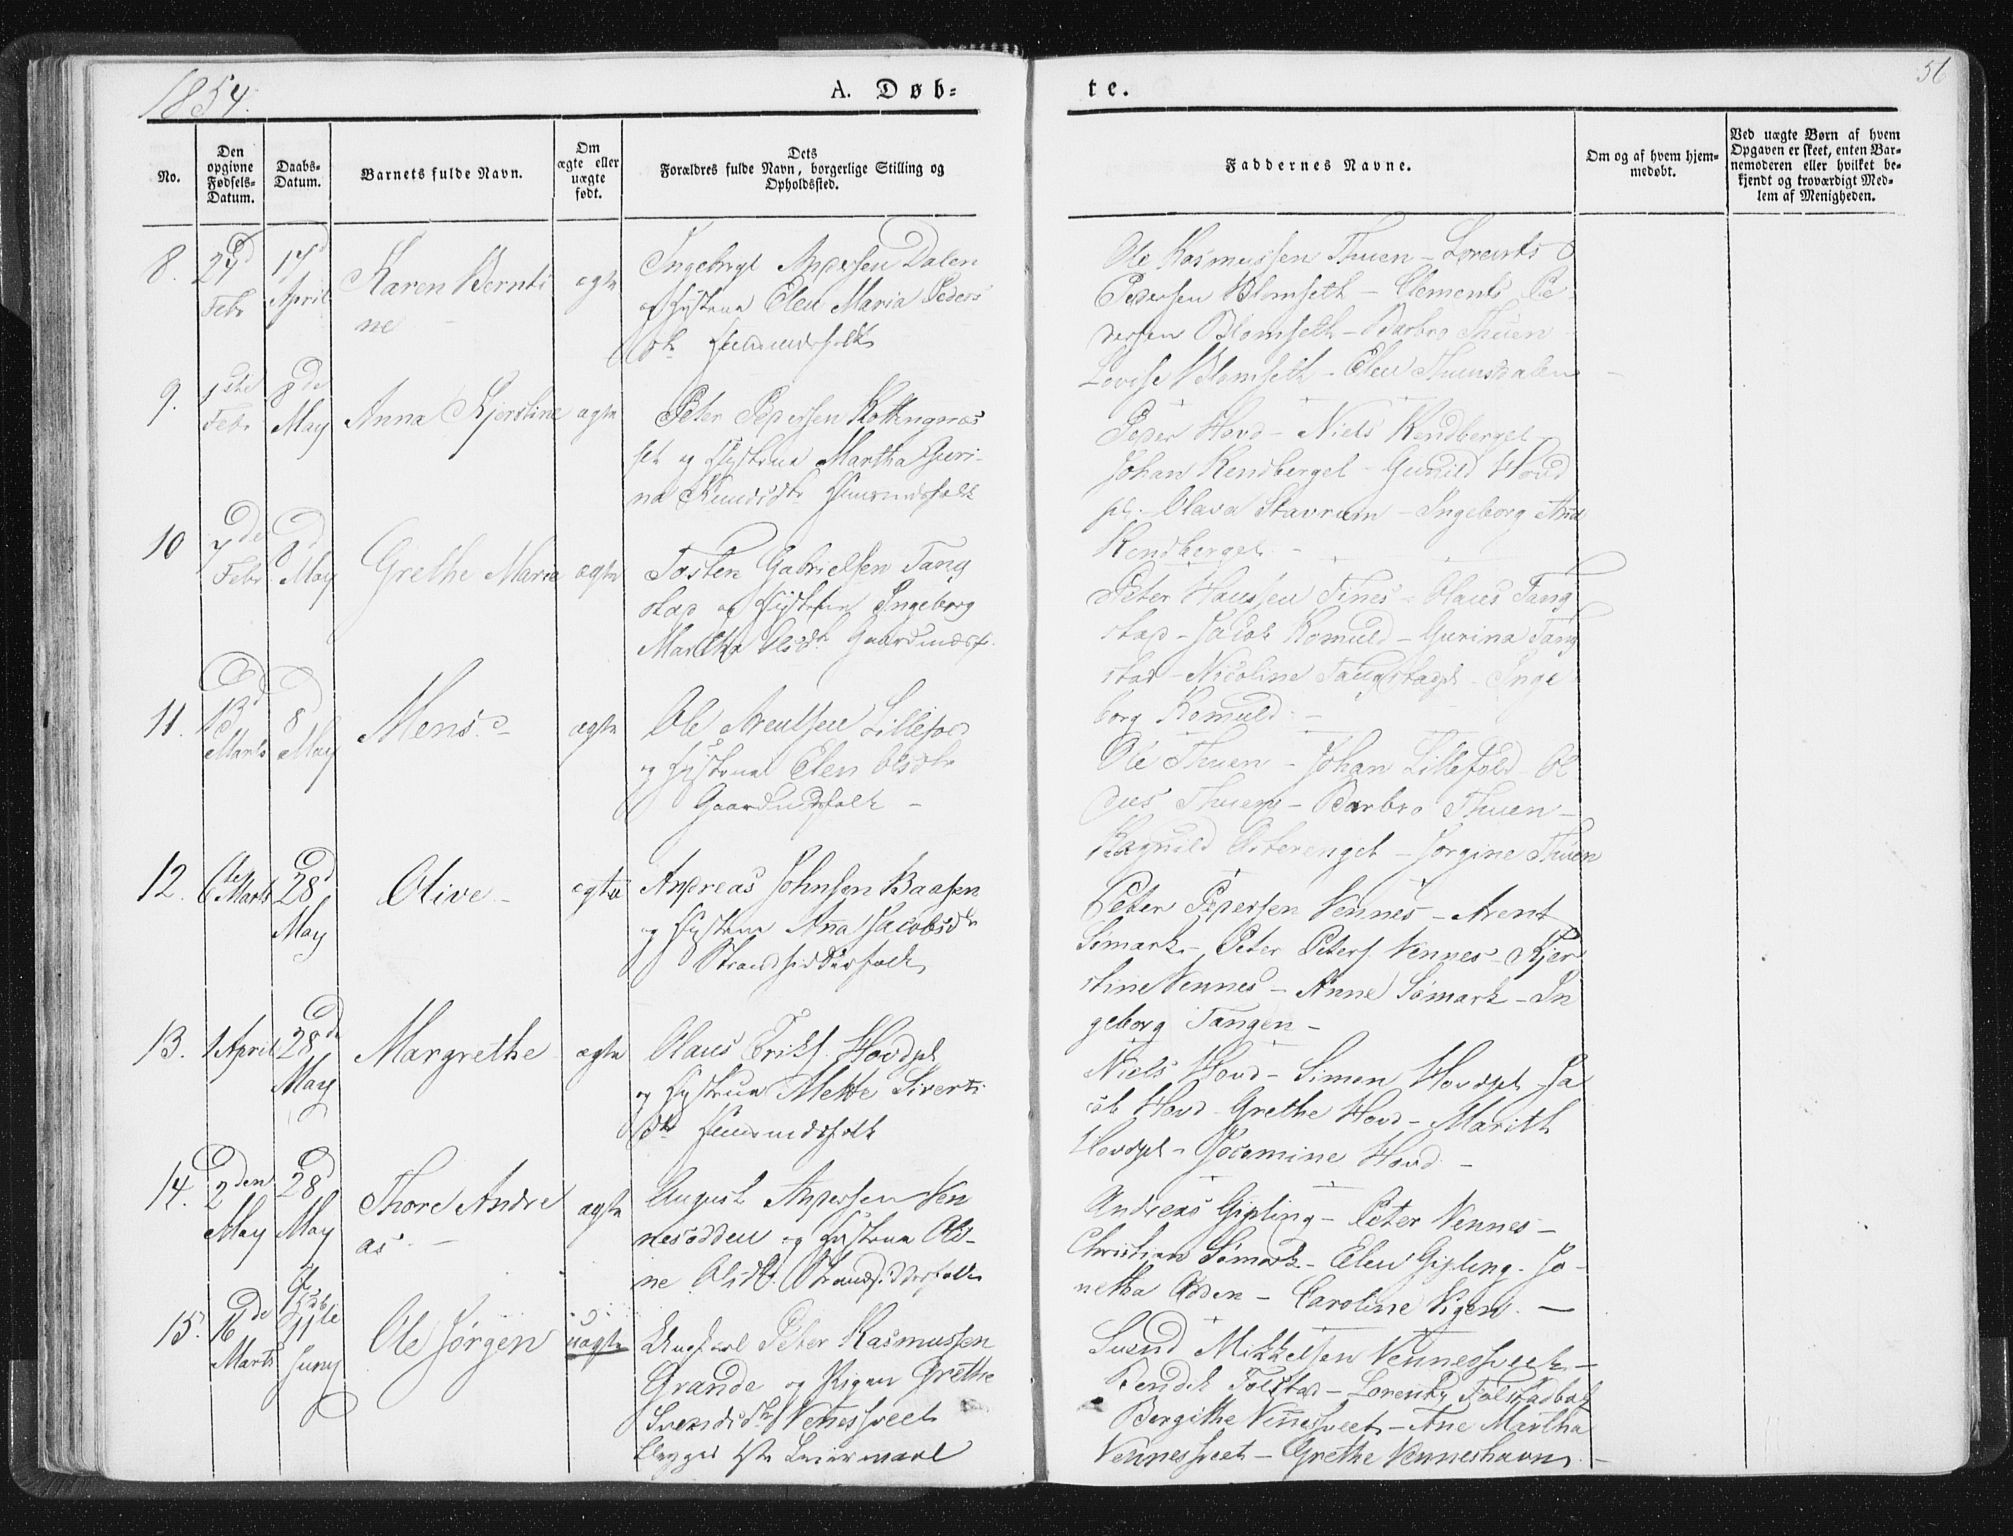 1854.
A. Døb-
te.
56
No.
Den opgivne Fødsels-Datum.
Daabs-Datum.
Barnets fulde Navn.
Om ægte eller uægte født.
Dets
Forældres fulde Navn, borgerlige Stilling og
Opholdssted.
Faddernes Navne.
Om og af hvem hjem-
medøbt.
Ved uægte Børn af hvem
Opgaven er skeet, enten Bar-
nemoderen eller hvilket be-
kjendt og troværdigt Med-
lem af Menigheden.
8. 27d Febr 17d April Karen Bernti
ne
ægte
Ingebrigt Andersen Dalen
og Hustrue Elen Maria Peders
dtr Huusmdsfolk
Ole Rasmussen Thuen - Lorents
Pedersen Blomseth - Clement Pe
dersen Blomseth - Barbro Thuen
Lovise Blomseth - Elen Thuensdalen
9. 1ste Febr 8de May Anna Kjerstine ægte
Peter Pedersen Kottengnæs
set og Hustrue Martha Guri-
na Knudsdtr Huusmdsfolk
Peder Hovd - Niels Rendberget
Johan Rendberget - Gunild Hovd
pl. Olava Stavrum - Ingeborg Ana
Rendberget -
10 7de Febr 8d May Grethe Maria ægte
Tosten Gabrielsen Tang
stad og Hustrue Ingeborg
Martha Olsdtr Gaardmdsf.
Peter Hansen Tines - Olaus Tang
stad - Jacob Romuld - Gurina Tang
stad - Nicoline Tangstadpl - Inge
borg Romuld -
11. 13d Marts 8d May Mens. ægte
Ole Arentsen Lillefold
og Hustrue Elen Olsdtr
Gaardmdsfolk -
Ole Thuen - Johan Lillefold - Ol
dus Thuen - Barbro Thuen -
Ragnild Østerenget - Jorgine Thuen
12. 6te Marts 28d May Olive - ægte
Andreas Johnsen Baasen
og Hustrue Ana Jacobsdtr
Strandsidderfolk
Peter Pedersen Vennes - Arent
Sømark - Peter Peters Vennes - Kjer
stine Vennes - Anne Sømark - In
geborg Tangen -
13. 1 April 28d May Margrethe ægte
Olaus Eriks. Hovdpl
og Hustrue Mette Siverts
dtr Huusmdsfolk
Niels Hovd - Simon Hovdpl - Ja
cob Hovd - Grethe Hovd - Marith
Hovdpl - Jocomine Hovd -
14. 2den May 28d May Thore Andre
as -
ægte
August Andersen Ven
nesodden og Hustrue Ol-
ine Olsdtr Strandsidderfolk
Andreas Gipling - Peter Vennes -
Christian Sømark - Elen Gipling - Jo-
netha Odden - Caroline Vigen -
15. 16de Marts 11te Juny Ole Jørgen uægte
Ungkarl Peter Rasmussen
Grande og Pigen Grethe
Svendsdtr Vennessveet
Begges 1ste Leiermaal
Svend Mikkelsen Vennessveet -
Bendik Folstad - Lorents Folstadbak
Bergithe Vennessveet - Ane Martha
Vennessveet - Grethe Venneshavn -